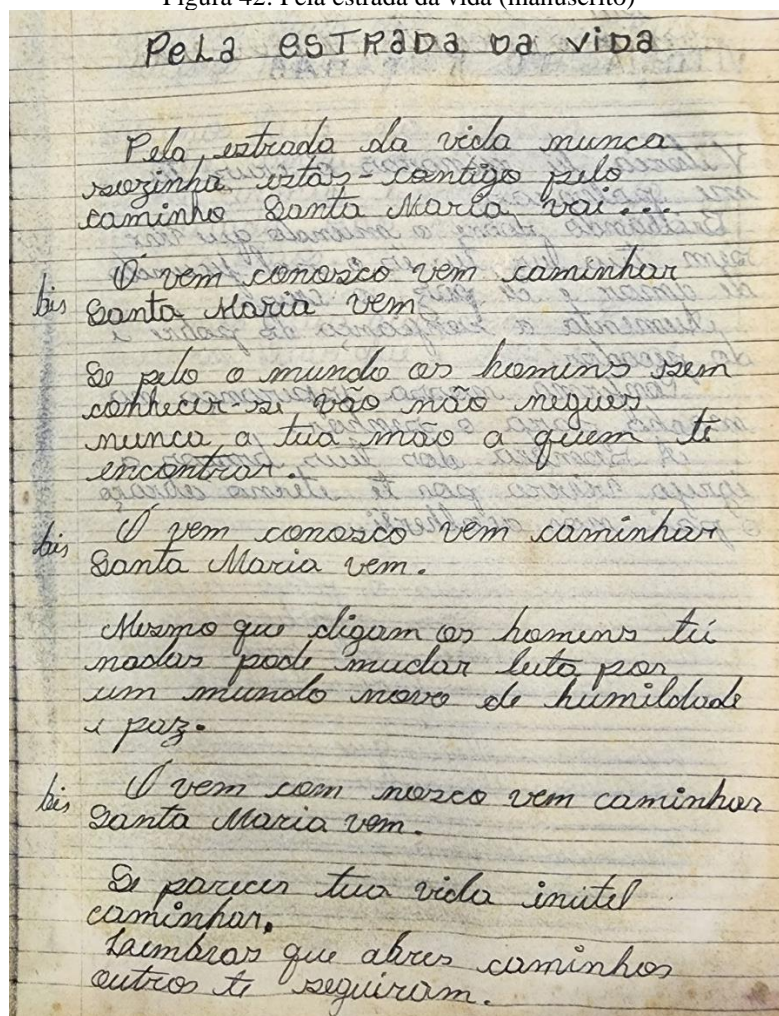 Figura 42: Pela estrada da vida (manuscrito)
Pela estrada da vida
Pela estrada da vida nunca
sozinha estás - contigo pelo
caminho Santa Maria vai...
bis Ó vem conosco vem caminhar
Santa Maria vem
Se pelo o mundo os homens sem
conhecer-se vão não negues
nunca a tua mão a quem te
encontrar.
bis Ó vem conosco vem caminhar
Santa Maria vem.
Mesmo que digam os homens tú
nadas pode mudar luta por
um mundo novo de humildade
e paz.
bis Ó vem com nosco vem caminhar
Santa Maria vem.
Se parecer tua vida inútel
caminhar.
Laimbrar que abres caminhos
outros te seguiram.